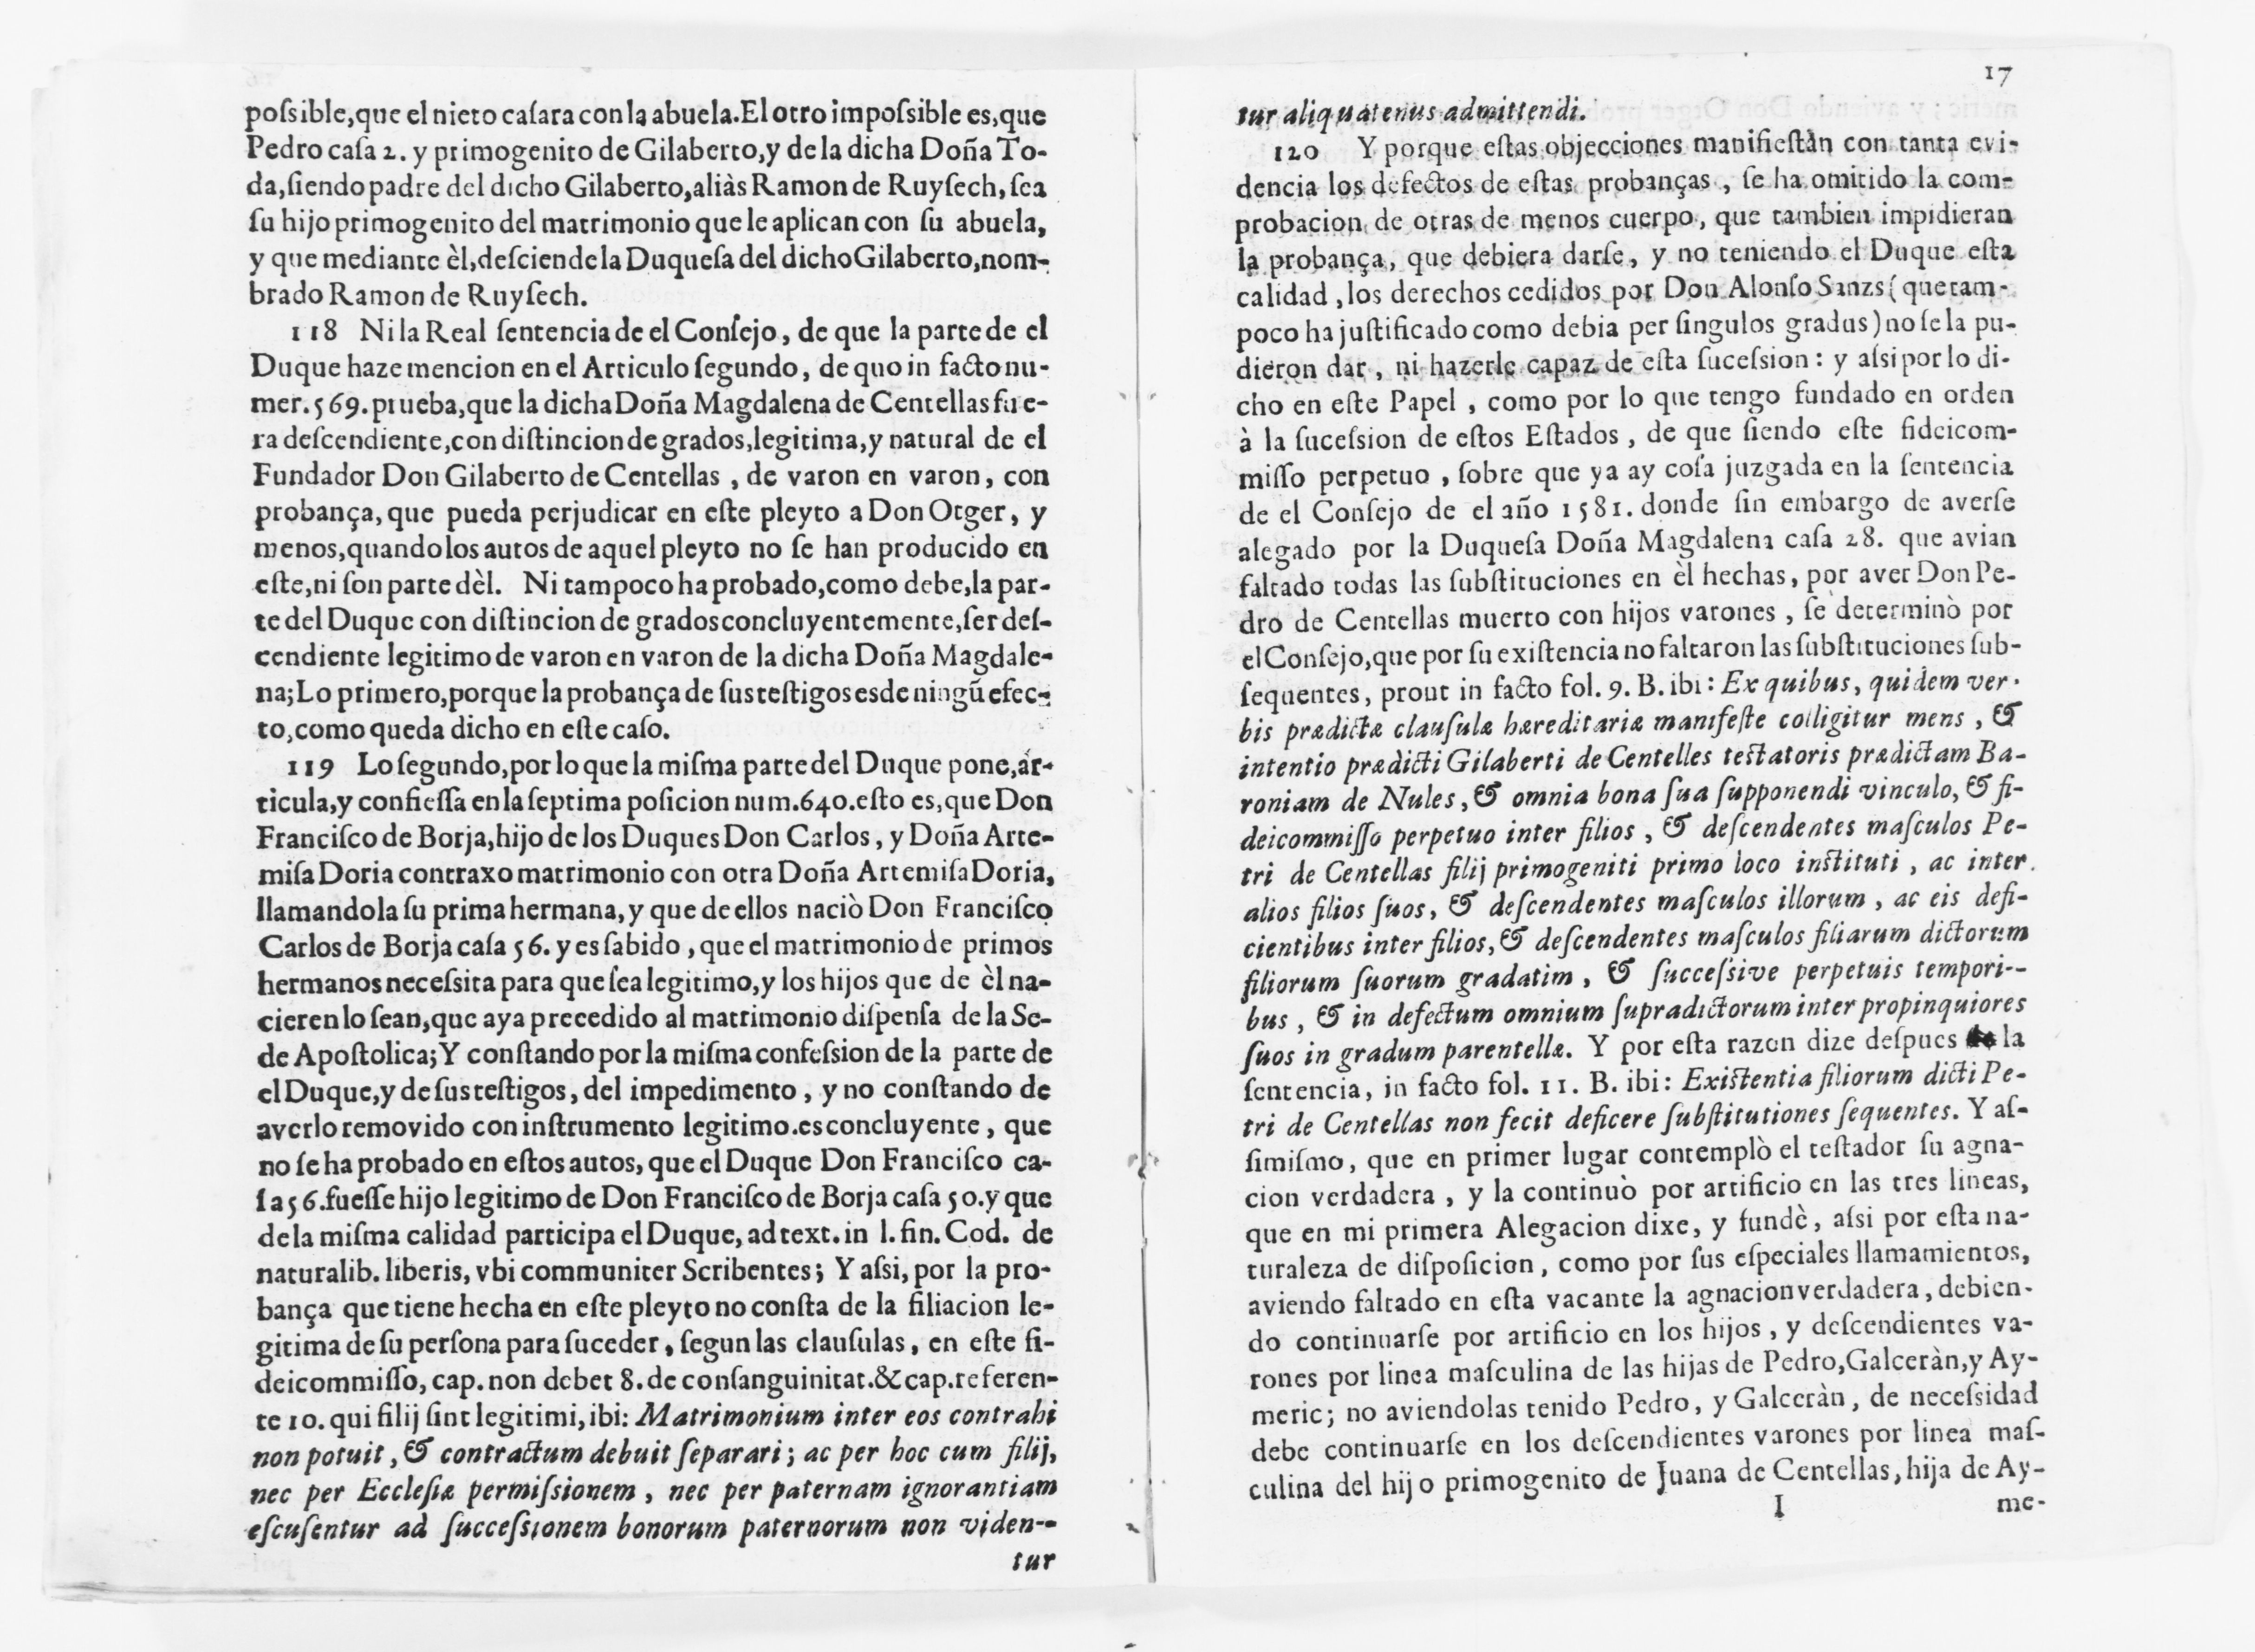 poſsible,que el nieto caſara con la abuela.El otro impoſsible es,que
Pedro caſa 2. y primogenito de Gilaberto,y de la dicha Doña To-
da,ſiendo padre del dicho Gilaberto,aliàs Ramon de Ruyſech, ſea
ſu hijo primogenito del matrimonio que le aplican con ſu abuela,
y que mediante èl,deſciende la Duqueſa del dicho Gilaberto,nom-
brado Ramon de Ruyſech.
118 Ni la Real ſentencia de el Conſejo, de que la parte de el
Duque haze mencion en el Articulo ſegundo, de quo in facto nu-
mer.569.prueba,que la dicha Doña Magdalena de Centellas fue-
ra deſcendiente,con diſtincion de grados,legitima,y natural de el
Fundador Don Gilaberto de Centellas , de varon en varon, con
probança,que pueda perjudicar en eſte pleyto a Don Otger, y
menos,quando los autos de aquel pleyto no ſe han producido en
eſte,ni ſon parte dèl. Ni tampoco ha probado,como debe,la par-
te del Duque con diſtincion de grados concluyentemente,ſer deſ-
cendiente legitimo de varon en varon de la dicha Doña Magdale-
na;Lo primero,porque la probança de ſus teſtigos es de ningũ efec-
to,como queda dicho en eſte caſo.
119 Lo ſegundo,por lo que la miſma parte del Duque pone,ar-
ticula,y confieſſa en la ſeptima poſicion num.640.eſto es,que Don
Franciſco de Borja,hijo de los Duques Don Carlos, y Doña Arte-
miſa Doria contraxo matrimonio con otra Doña Artemiſa Doria,
llamandola ſu prima hermana,y que de ellos naciò Don Franciſco
Carlos de Borja caſa 56. y es ſabido , que el matrimonio de primos
hermanos neceſsita para que ſea legitimo,y los hijos que de èl na-
cieren lo ſean,que aya precedido al matrimonio diſpenſa de la Se-
de Apoſtolica;Y conſtando por la miſma confeſsion de la parte de
el Duque,y de ſus teſtigos, del impedimento , y no conſtando de
averlo removido con inſtrumento legitimo.es concluyente , que
no ſe ha probado en eſtos autos, que el Duque Don Franciſco ca-
ſa 56.fueſſe hijo legitimo de Don Franciſco de Borja caſa 50.y que
de la miſma calidad participa el Duque, ad text. in l. fin. Cod. de
naturalib. liberis, vbi communiter Scribentes; Y aſsi, por la pro-
bança que tiene hecha en eſte pleyto no conſta de la filiacion le-
gitima de ſu perſona para ſuceder, ſegun las clauſulas, en eſte fi-
deicommiſſo, cap. non debet 8. de conſanguinitat.&cap.referen-
te 10. qui filij ſint legitimi, ibi: Matrimonium inter eos contrahi
non potuit , & contractum debuit ſeparari ; ac per hoc cum filij,
nec per Eccleſiæ permiſsionem , nec per paternam ignorantiam
eſcuſentur ad ſucceſsionem bonorum paternorum non viden--
tur
17
tur aliquatenus admittendi.
120 Y porque eſtas objecciones manifieſtàn con tanta evi-
dencia los defectos de eſtas probanças , ſe ha omitido la com-
probacion de otras de menos cuerpo, que tambien impidieran
la probança, que debiera darſe, y no teniendo el Duque eſta
calidad , los derechos cedidos por Don Alonſo Sanzs ( que tam-
poco ha juſtificado como debia per ſingulos gradus) no ſe la pu-
dieron dar , ni hazerle capaz de eſta ſuceſsion : y aſsi por lo di-
cho en eſte Papel , como por lo que tengo fundado en orden
à la ſuceſsion de eſtos Eſtados , de que ſiendo eſte fideicom-
miſſo perpetuo , ſobre que ya ay coſa juzgada en la ſentencia
de el Conſejo de el año 1581. donde ſin embargo de averſe
alegado por la Duqueſa Doña Magdalena caſa 28. que avian
faltado todas las ſubſtituciones en èl hechas, por aver Don Pe-
dro de Centellas muerto con hijos varones , ſe determinò por
el Conſejo,que por ſu exiſtencia no faltaron las ſubſtituciones ſub-
ſequentes, prout in facto fol. 9. B. ibi: Ex quibus, quidem ver-
bis prædictæ clauſulæ hæreditariæ manifeſte colligitur mens , &
intentio prædicti Gilaberti de Centelles teſtatoris prædictam Ba-
roniam de Nules, & omnia bona ſua ſupponendi vinculo, & fi-
deicommiſſo perpetuo inter filios , & deſcendentes maſculos Pe-
tri de Centellas filij primogeniti primo loco inſtituti , ac inter
alios filios ſuos, & deſcendentes maſculos illorum , ac eis defi-
cientibus inter filios, & deſcendentes maſculos filiarum dictorum
filiorum ſuorum gradatim , & ſucceſsive perpetuis tempori--
bus , & in defectum omnium ſupradictorum inter propinquiores
ſuos in gradum parentellæ. Y por eſta razon dize deſpues la
ſentencia, in facto fol. 11. B. ibi: Exiſtentia filiorum dicti Pe-
tri de Centellas non fecit deficere ſubſtitutiones ſequentes. Y aſ-
ſimiſmo, que en primer lugar contemplò el teſtador ſu agna-
cion verdadera , y la continuò por artificio en las tres lineas,
que en mi primera Alegacion dixe, y fundè, aſsi por eſta na-
turaleza de diſpoſicion, como por ſus eſpeciales llamamientos,
aviendo faltado en eſta vacante la agnacion verdadera, debien-
do continuarſe por artificio en los hijos , y deſcendientes va-
rones por linea maſculina de las hijas de Pedro,Galceràn,y Ay-
meric; no aviendolas tenido Pedro, y Galceràn, de neceſsidad
debe continuarſe en los deſcendientes varones por linea maſ-
culina del hijo primogenito de Juana de Centellas, hija de Ay-
I me-